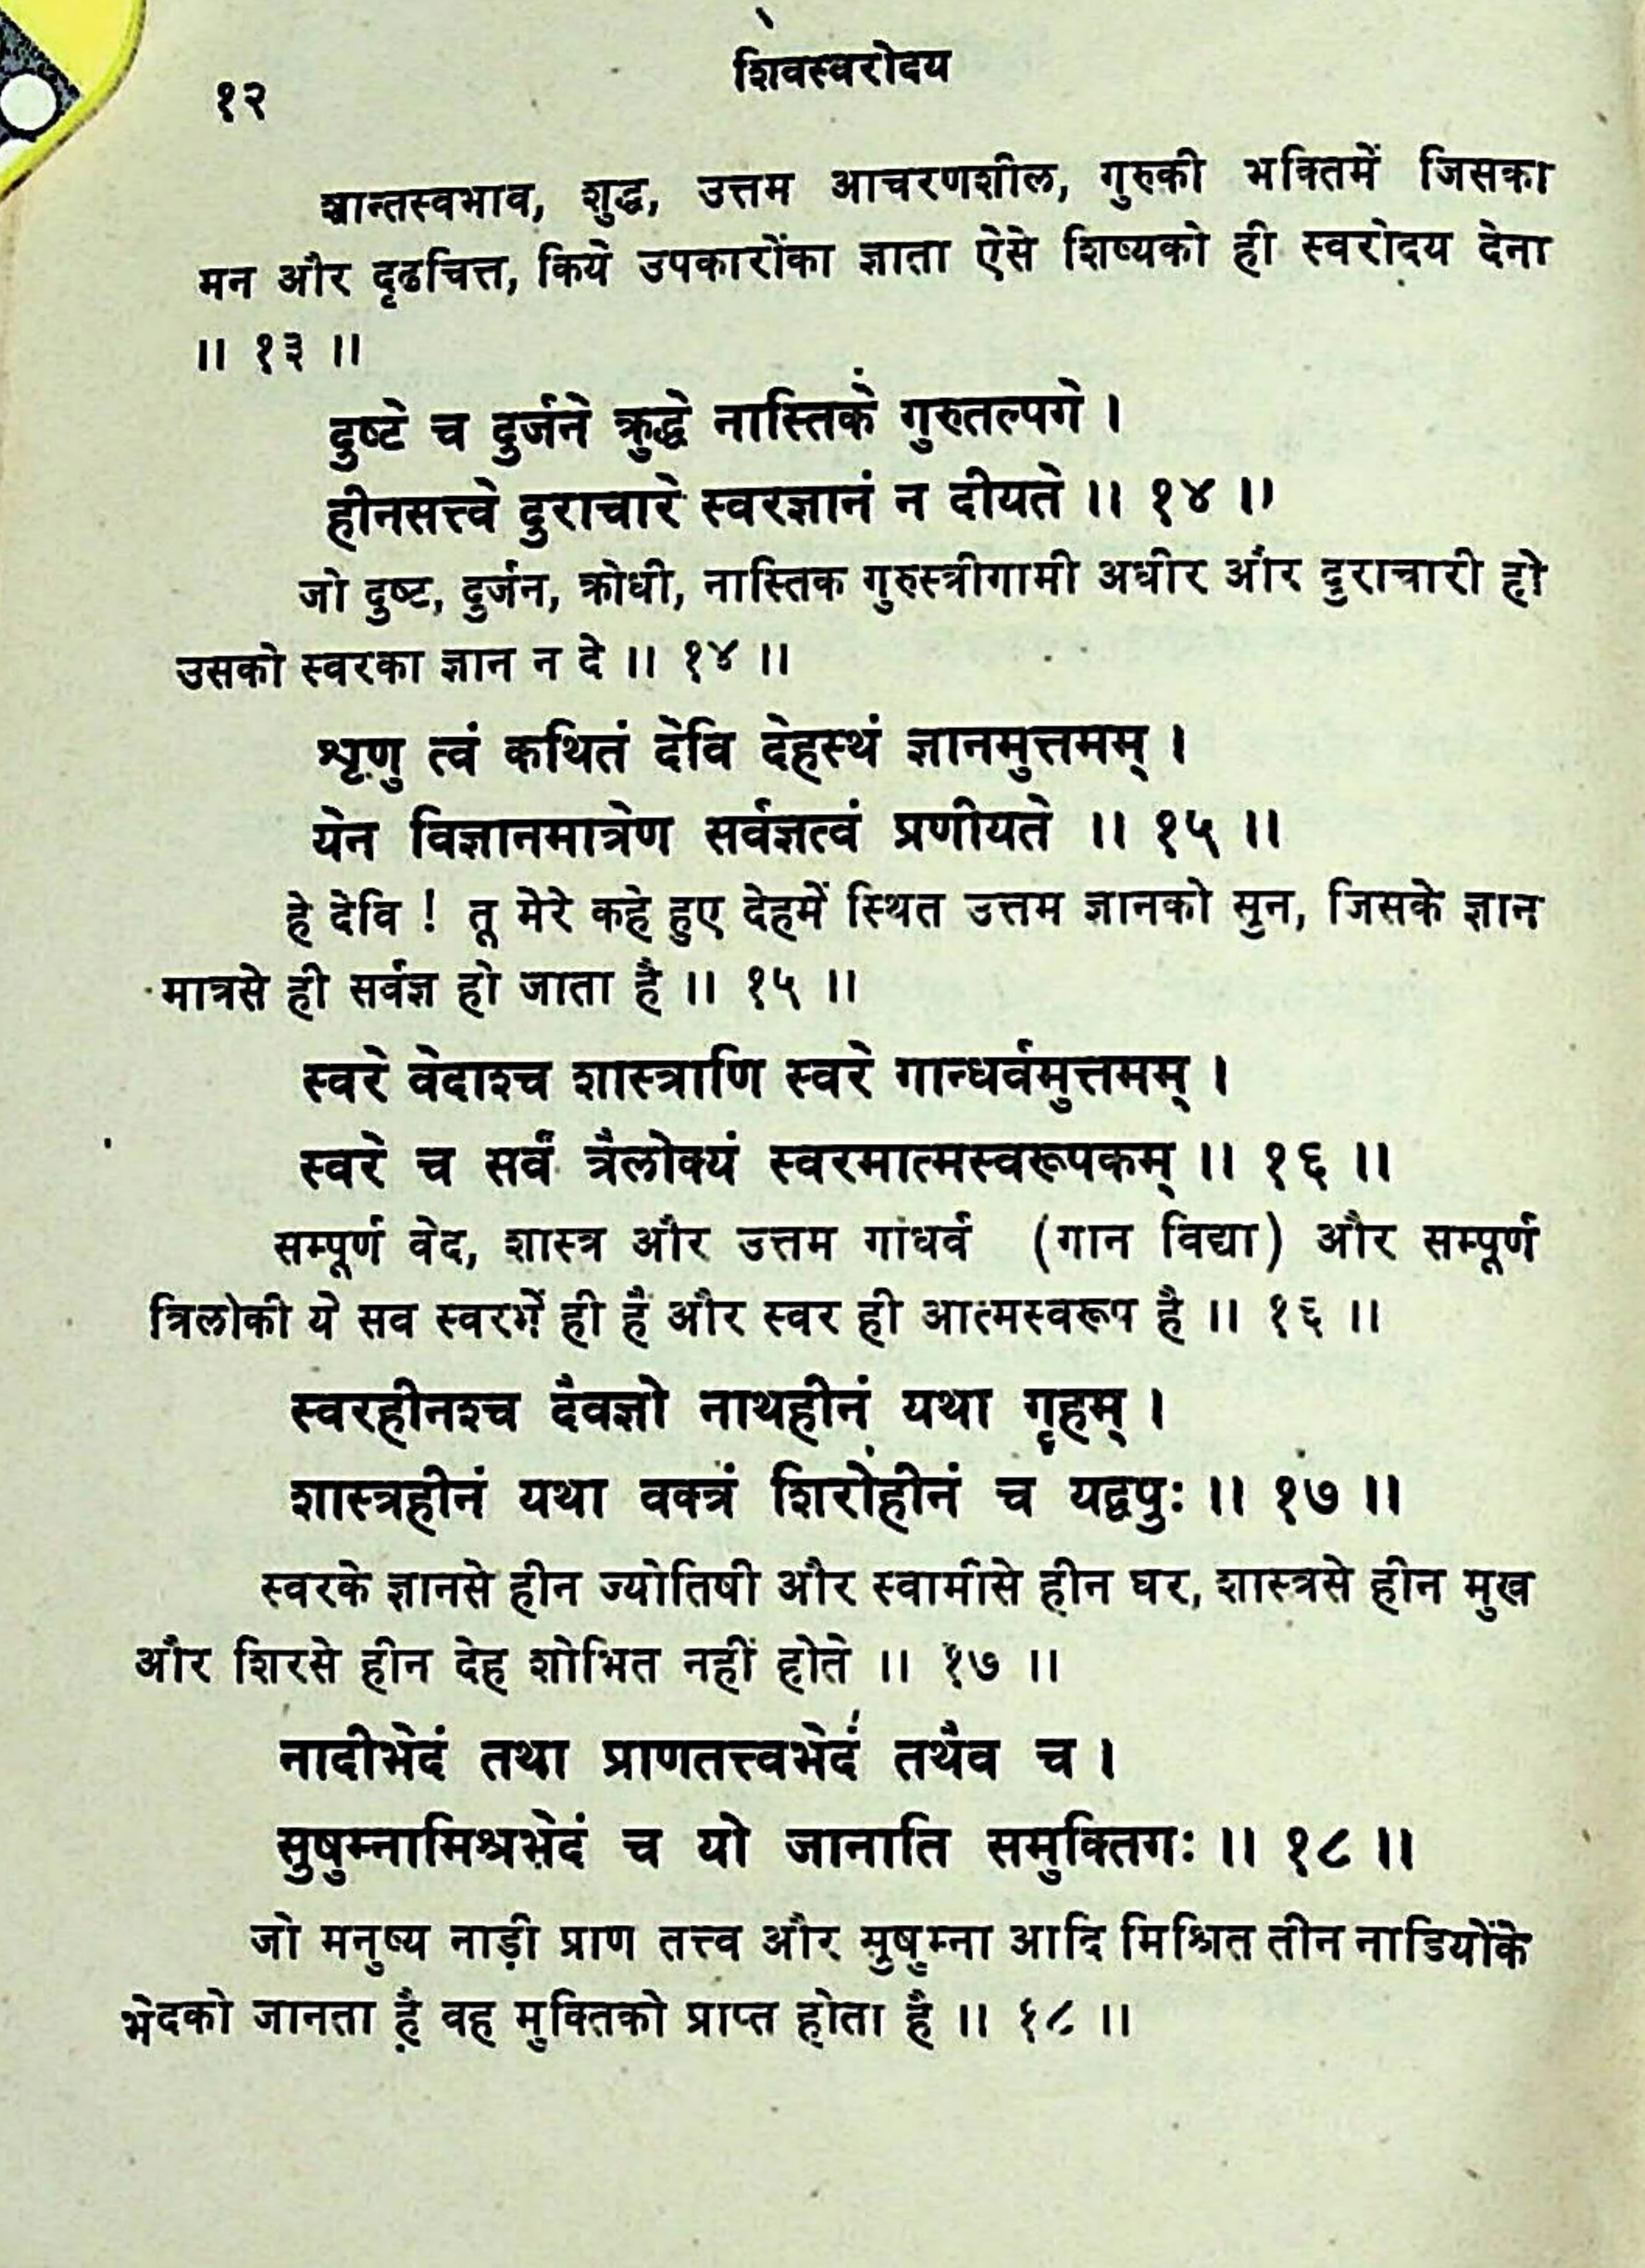 शिवस्वरोदय
१२
शान्तस्वभाव, शुद्ध, उत्तम आचरणशील, गुरुकी भक्तिमें जिसका
मन और दृढचित्त, किये उपकारोंका ज्ञाता ऐसे शिष्यको ही स्वरोदय देना
॥ १३ ॥
दुष्टे च दुर्जने क्रुद्धे नास्तिके गुरुतल्पगे ।
हीनसत्त्वे दुराचारे स्वरज्ञानं न दीयते ॥ १४ ॥
जो दुष्ट, दुर्जन, क्रोधी, नास्तिक गुरुस्त्रीगामी अधीर और दुराचारी हो
उसको स्वरका ज्ञान न दे ॥ १४ ॥
शृणु त्वं कथितं देवि देहस्थं ज्ञानमुत्तमम् ।
येन विज्ञानमात्रेण सर्वज्ञत्वं प्रणीयते ॥ १५ ॥
हे देवि ! तू मेरे कहे हुए देहमें स्थित उत्तम ज्ञानको सुन, जिसके ज्ञान
मात्रसे ही सर्वज्ञ हो जाता है ॥ १५ ॥
स्वरे वेदाश्च शास्त्राणि स्वरे गान्धर्वमुत्तमम् ।
स्वरे च सर्वं त्रैलोक्यं स्वरमात्मस्वरूपकम् ॥ १६ ॥
सम्पूर्ण वेद, शास्त्र और उत्तम गांधर्व (गान विद्या) और सम्पूर्ण
त्रिलोकी ये सव स्वरमें ही हैं और स्वर ही आत्मस्वरूप है ॥ १६ ॥
स्वरहीनश्च दैवज्ञो नाथहीनं यथा गृहम् ।
शास्त्रहीनं यथा वक्त्रं शिरोहीनं च यद्वपुः ॥ १७ ॥
स्वरके ज्ञानसे हीन ज्योतिषी और स्वामीसे हीन घर, शास्त्रसे हीन मुख
और शिरसे हीन देह शोभित नहीं होते ॥ १७ ॥
नादीभेदं तथा प्राणतत्त्वभेदं तथैव च ।
सुषुम्नामिश्रभेदं च यो जानाति समुक्तिगः ॥ १८ ॥
जो मनुष्य नाड़ी प्राण तत्त्व और सुषुम्ना आदि मिश्रित तीन नाडियोंके
भेदको जानता है वह मुक्तिको प्राप्त होता है ॥ १८ ॥